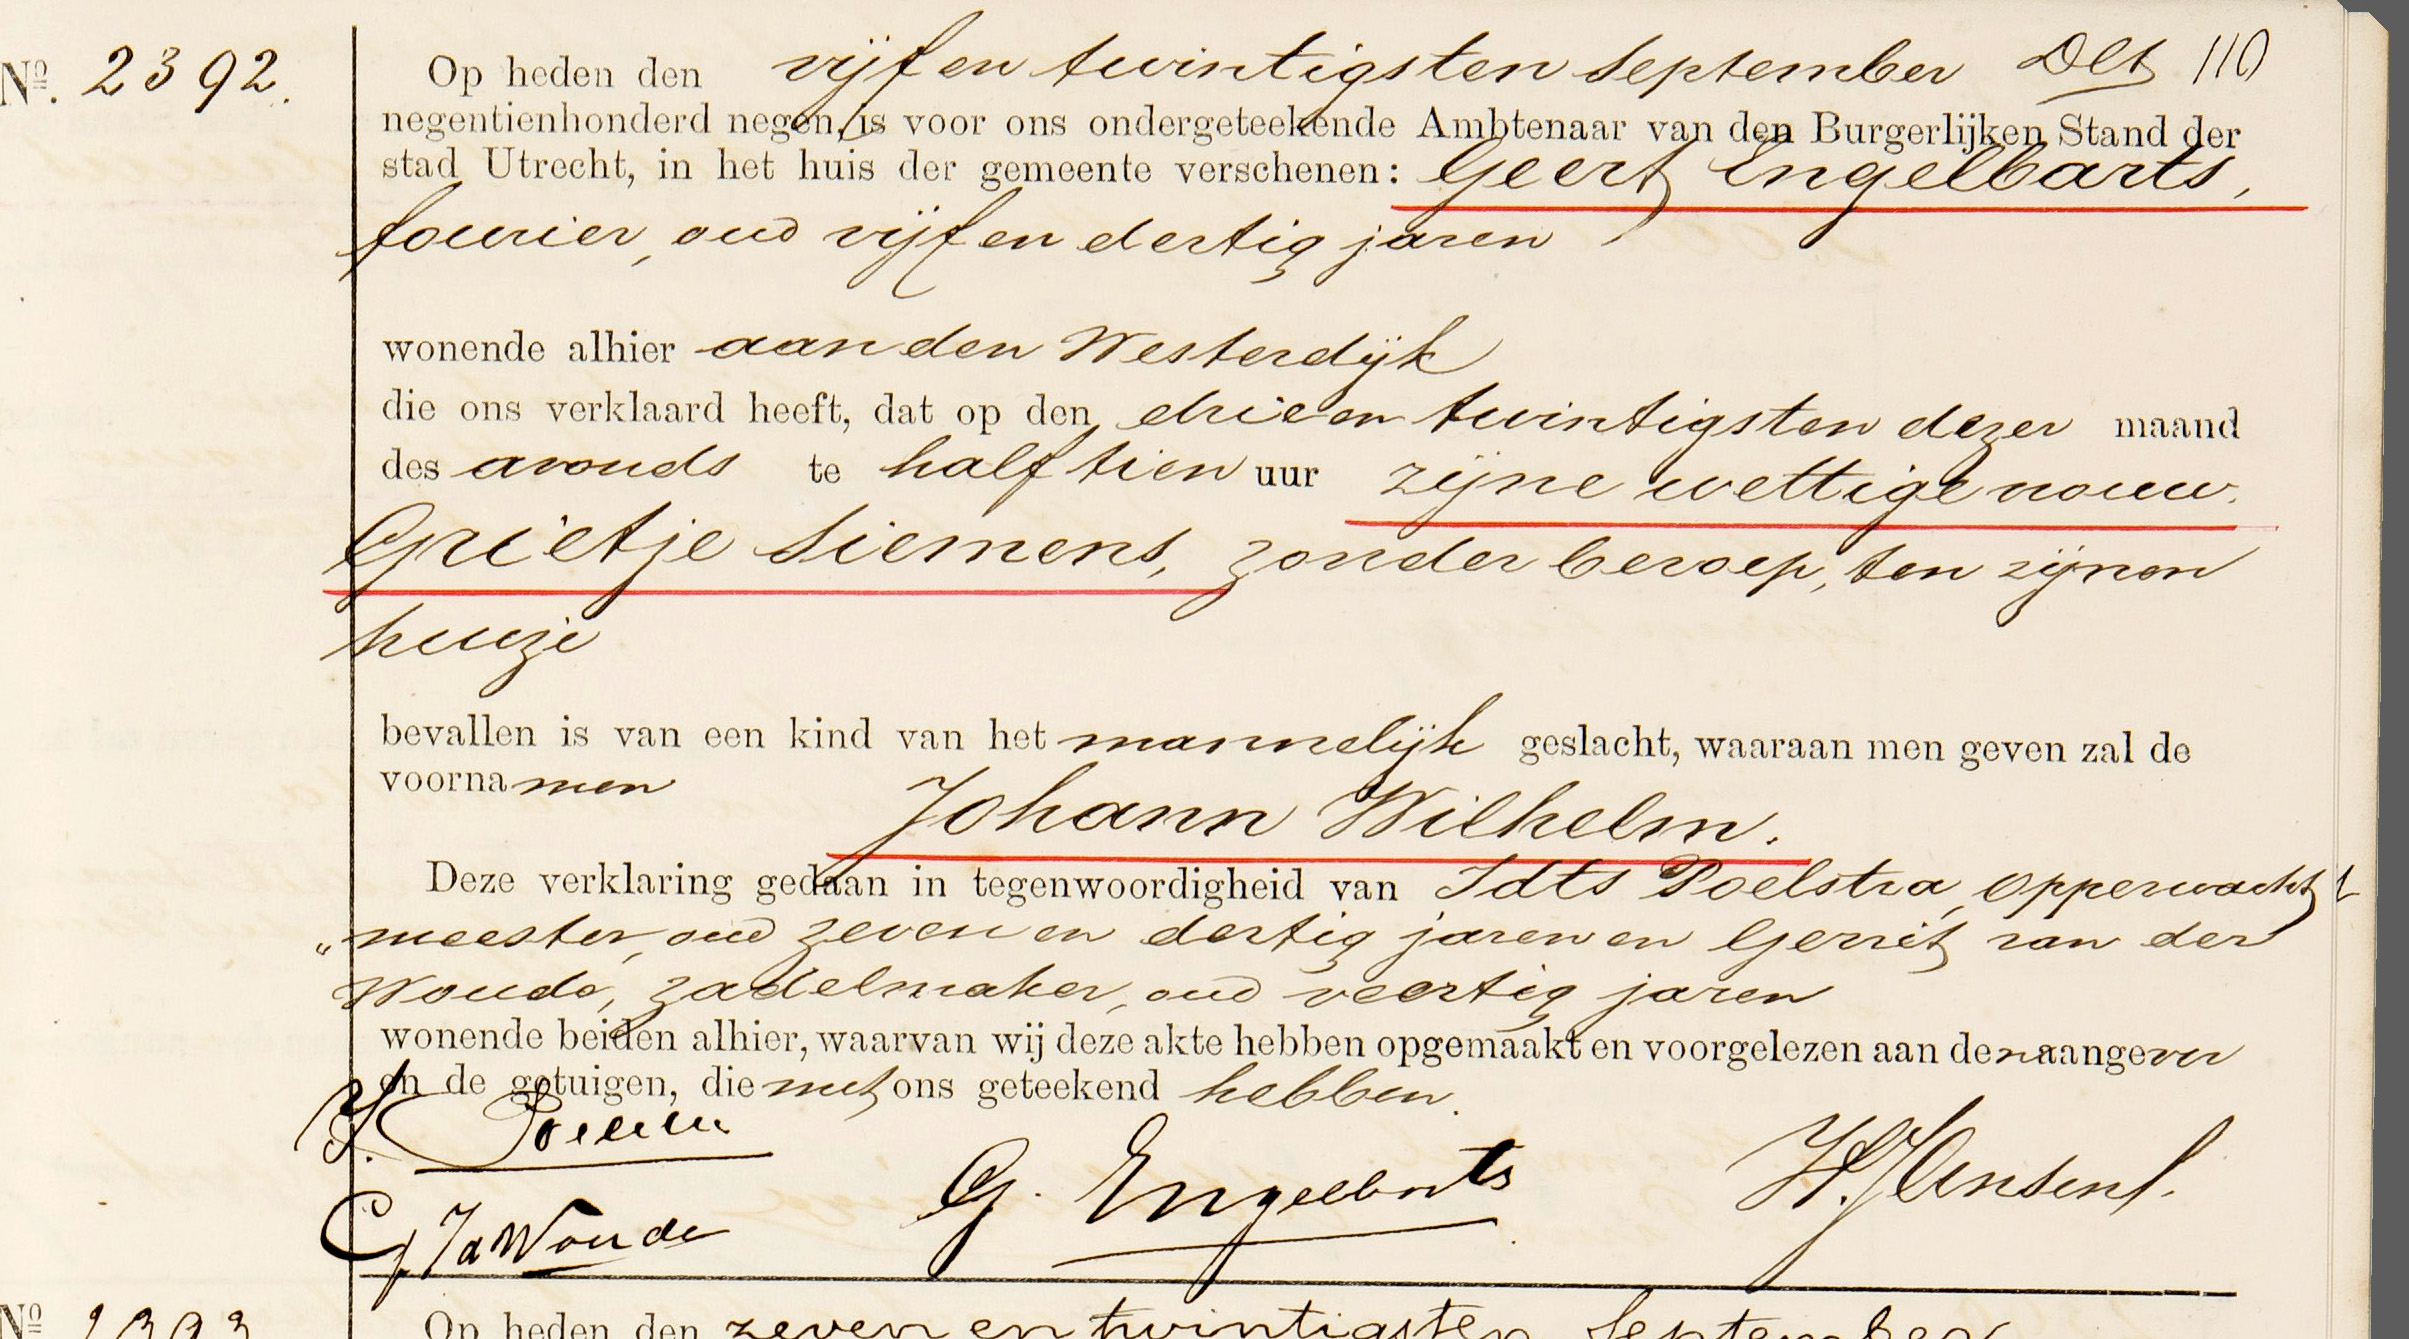 No. 2392.
Op heden den vijf en twintigsten September Dct 110
negentienhonderd negen, is voor ons ondergeteekende Ambtenaar van den Burgerlijken Stand der
stad Utrecht, in het huis der gemeente verschenen: Geert Engelbarts,
fourier, oud vijf en dertig jaren
wonende alhier aan den Westerdijk
die ons verklaard heeft, dat op den drie en twintigsten dezer maand
des avonds te half tien uur zijne wettige vrouw
Grietje Siemens, zonder beroep, ten zijnen
huize
bevallen is van een kind van het mannelijk geslacht, waaraan men geven zal de
voornamen Johann Wilhelm.
Deze verklaring gedaan in tegenwoordigheid van Idts Poelstra, opperwacht
„meester, oud zeven en dertig jaren en Gerrit van der
Woude, zadelmaker, oud veertig jaren
wonende beiden alhier, waarvan wij deze akte hebben opgemaakt en voorgelezen aan den aangever
en de getuigen, die met ons geteekend hebben.
G. Engelbarts
G vd Woude
No 2393
Op heden den zeven en twintigsten September